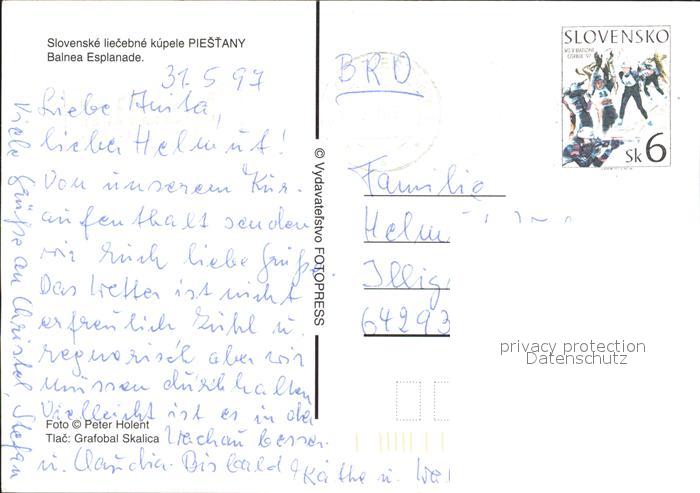 Slovenské liečebné kúpele PIEŠŤANY
Balnea Esplanade.
31.5 97
Liebe Anita,
lieber Helmut!
Von unserem Kur-
aufenthalt senden
wir Euch liebe Grüße.
Das Wetter ist nicht
erfreulich kühl u.
regnerisch aber wir
müssen durchhalten
Vielleicht ist es in der
Wachau besser.
Viele Grüße an Christel, Stefan
u. Claudia. Bis bald Käthe u.
Foto © Peter Holent
Tlač: Grafobal Skalica
© Vydavateľstvo FOTOPRESS
BRD
SLOVENSKO
Sk 6
Familie
Helm
Illig
64293
privacy protection
Datenschutz